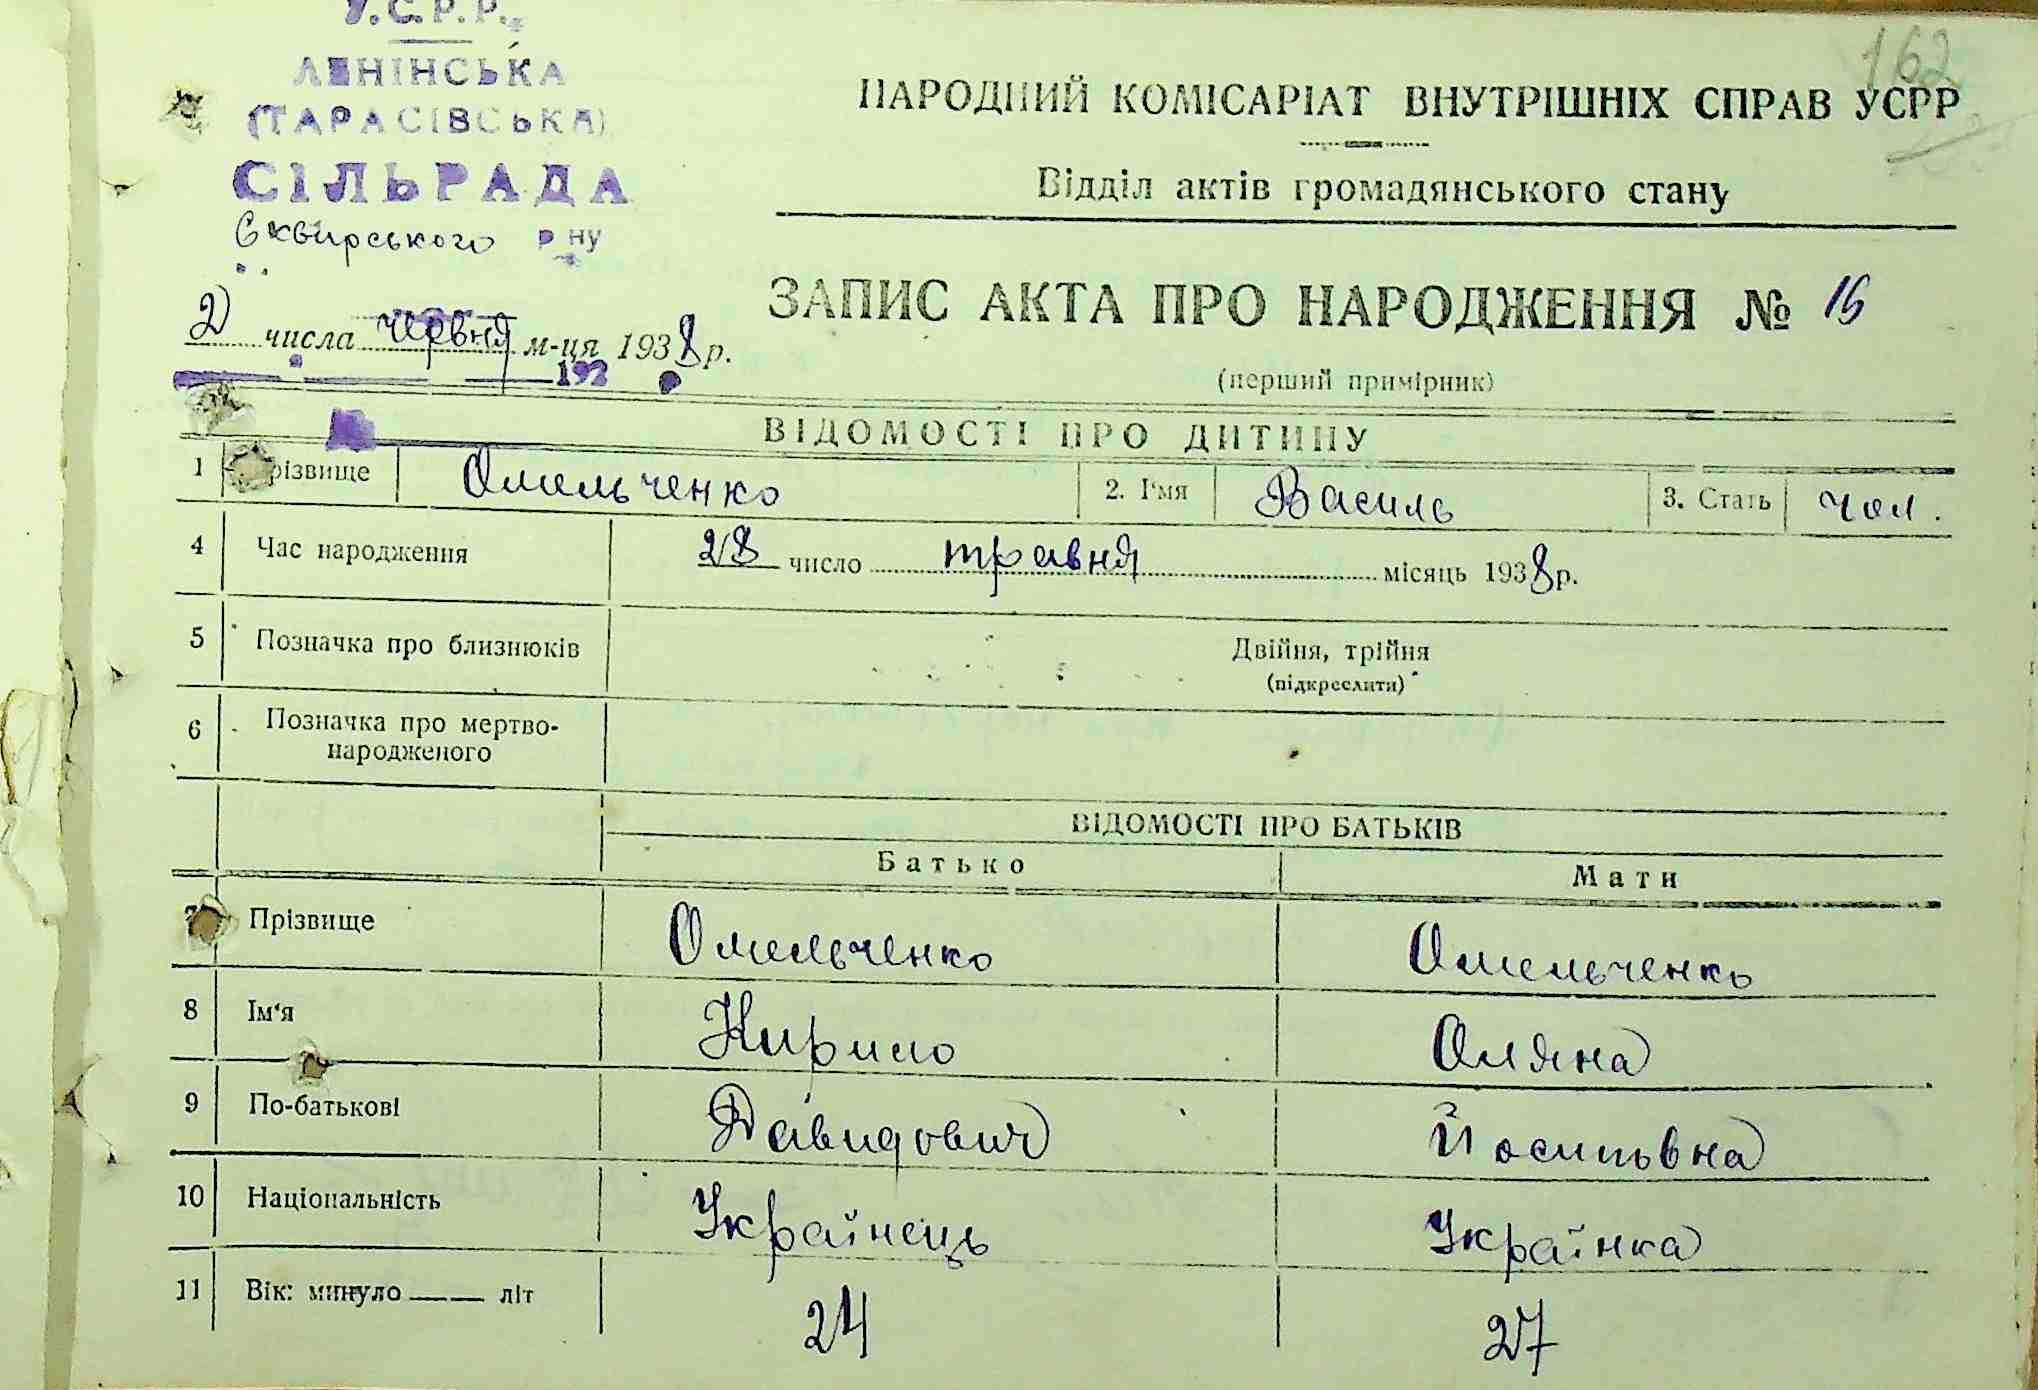 У.С.Р.Р.
ЛЕНІНСЬКА
(ТАРАСІВСЬКА)
СІЛЬРАДА
Сквирського р ну
162
НАРОДНИЙ КОМІСАРІАТ ВНУТРІШНІХ СПРАВ УСРР
Відділ актів громадянського стану
2 числа червня м-ця 1938 р.
192
ЗАПИС АКТА ПРО НАРОДЖЕННЯ № 15
(перший примірник)
ВІДОМОСТІ ПРО ДИТИНУ
1 різвище Омельченко 2. І'мя Василь 3. Стать чол.
4 Час народження 28 число травня місяць 1938 р.
5 Позначка про близнюків Двійня, трійня
(підкреслити)
6 Позначка про мертво-
народженого
ВІДОМОСТІ ПРО БАТЬКІВ
Батько Мати
7 Прізвище Омельченко Омельченко
8 Ім'я Кирило Оляна
9 По-батькові Давидович Йосипівна
10 Національність Українець Українка
11 Вік: минуло —— літ 24 27